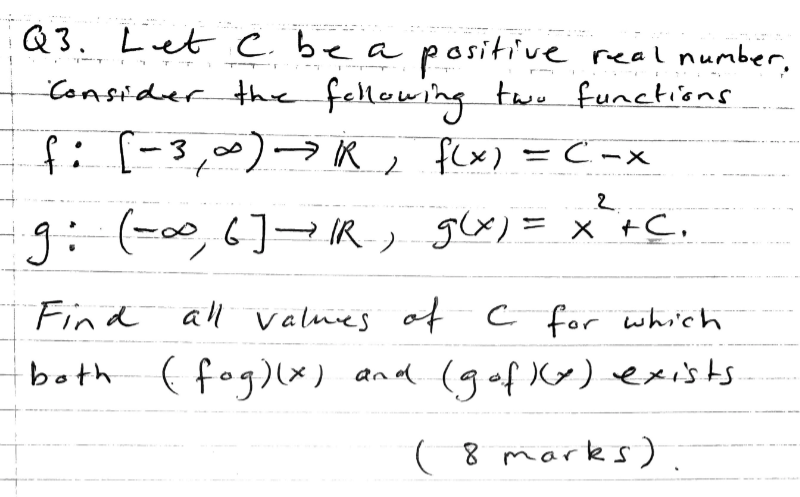 Q3. Let C be a positive real number.
Consider the following two functions
f: [-3,∞) → ℝ, f(x) = C-x
g: (-∞, 6] → ℝ, g(x) = x² + C.
Find all values of C for which
both (fog)(x) and (gof)(x) exists
(8 marks).